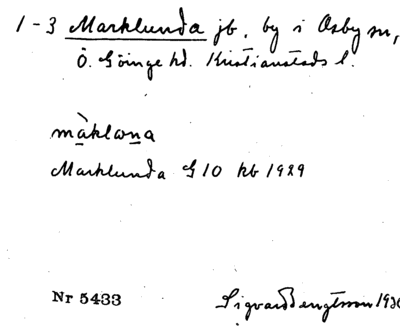 1-3 Marklunda jb, by i Osby sn,
Ö. Göinge hd. Kristianstads l.
màklȧna
Marklunda G10 kb 1929
Nr 5433 Sigvard Bengtsson 1936